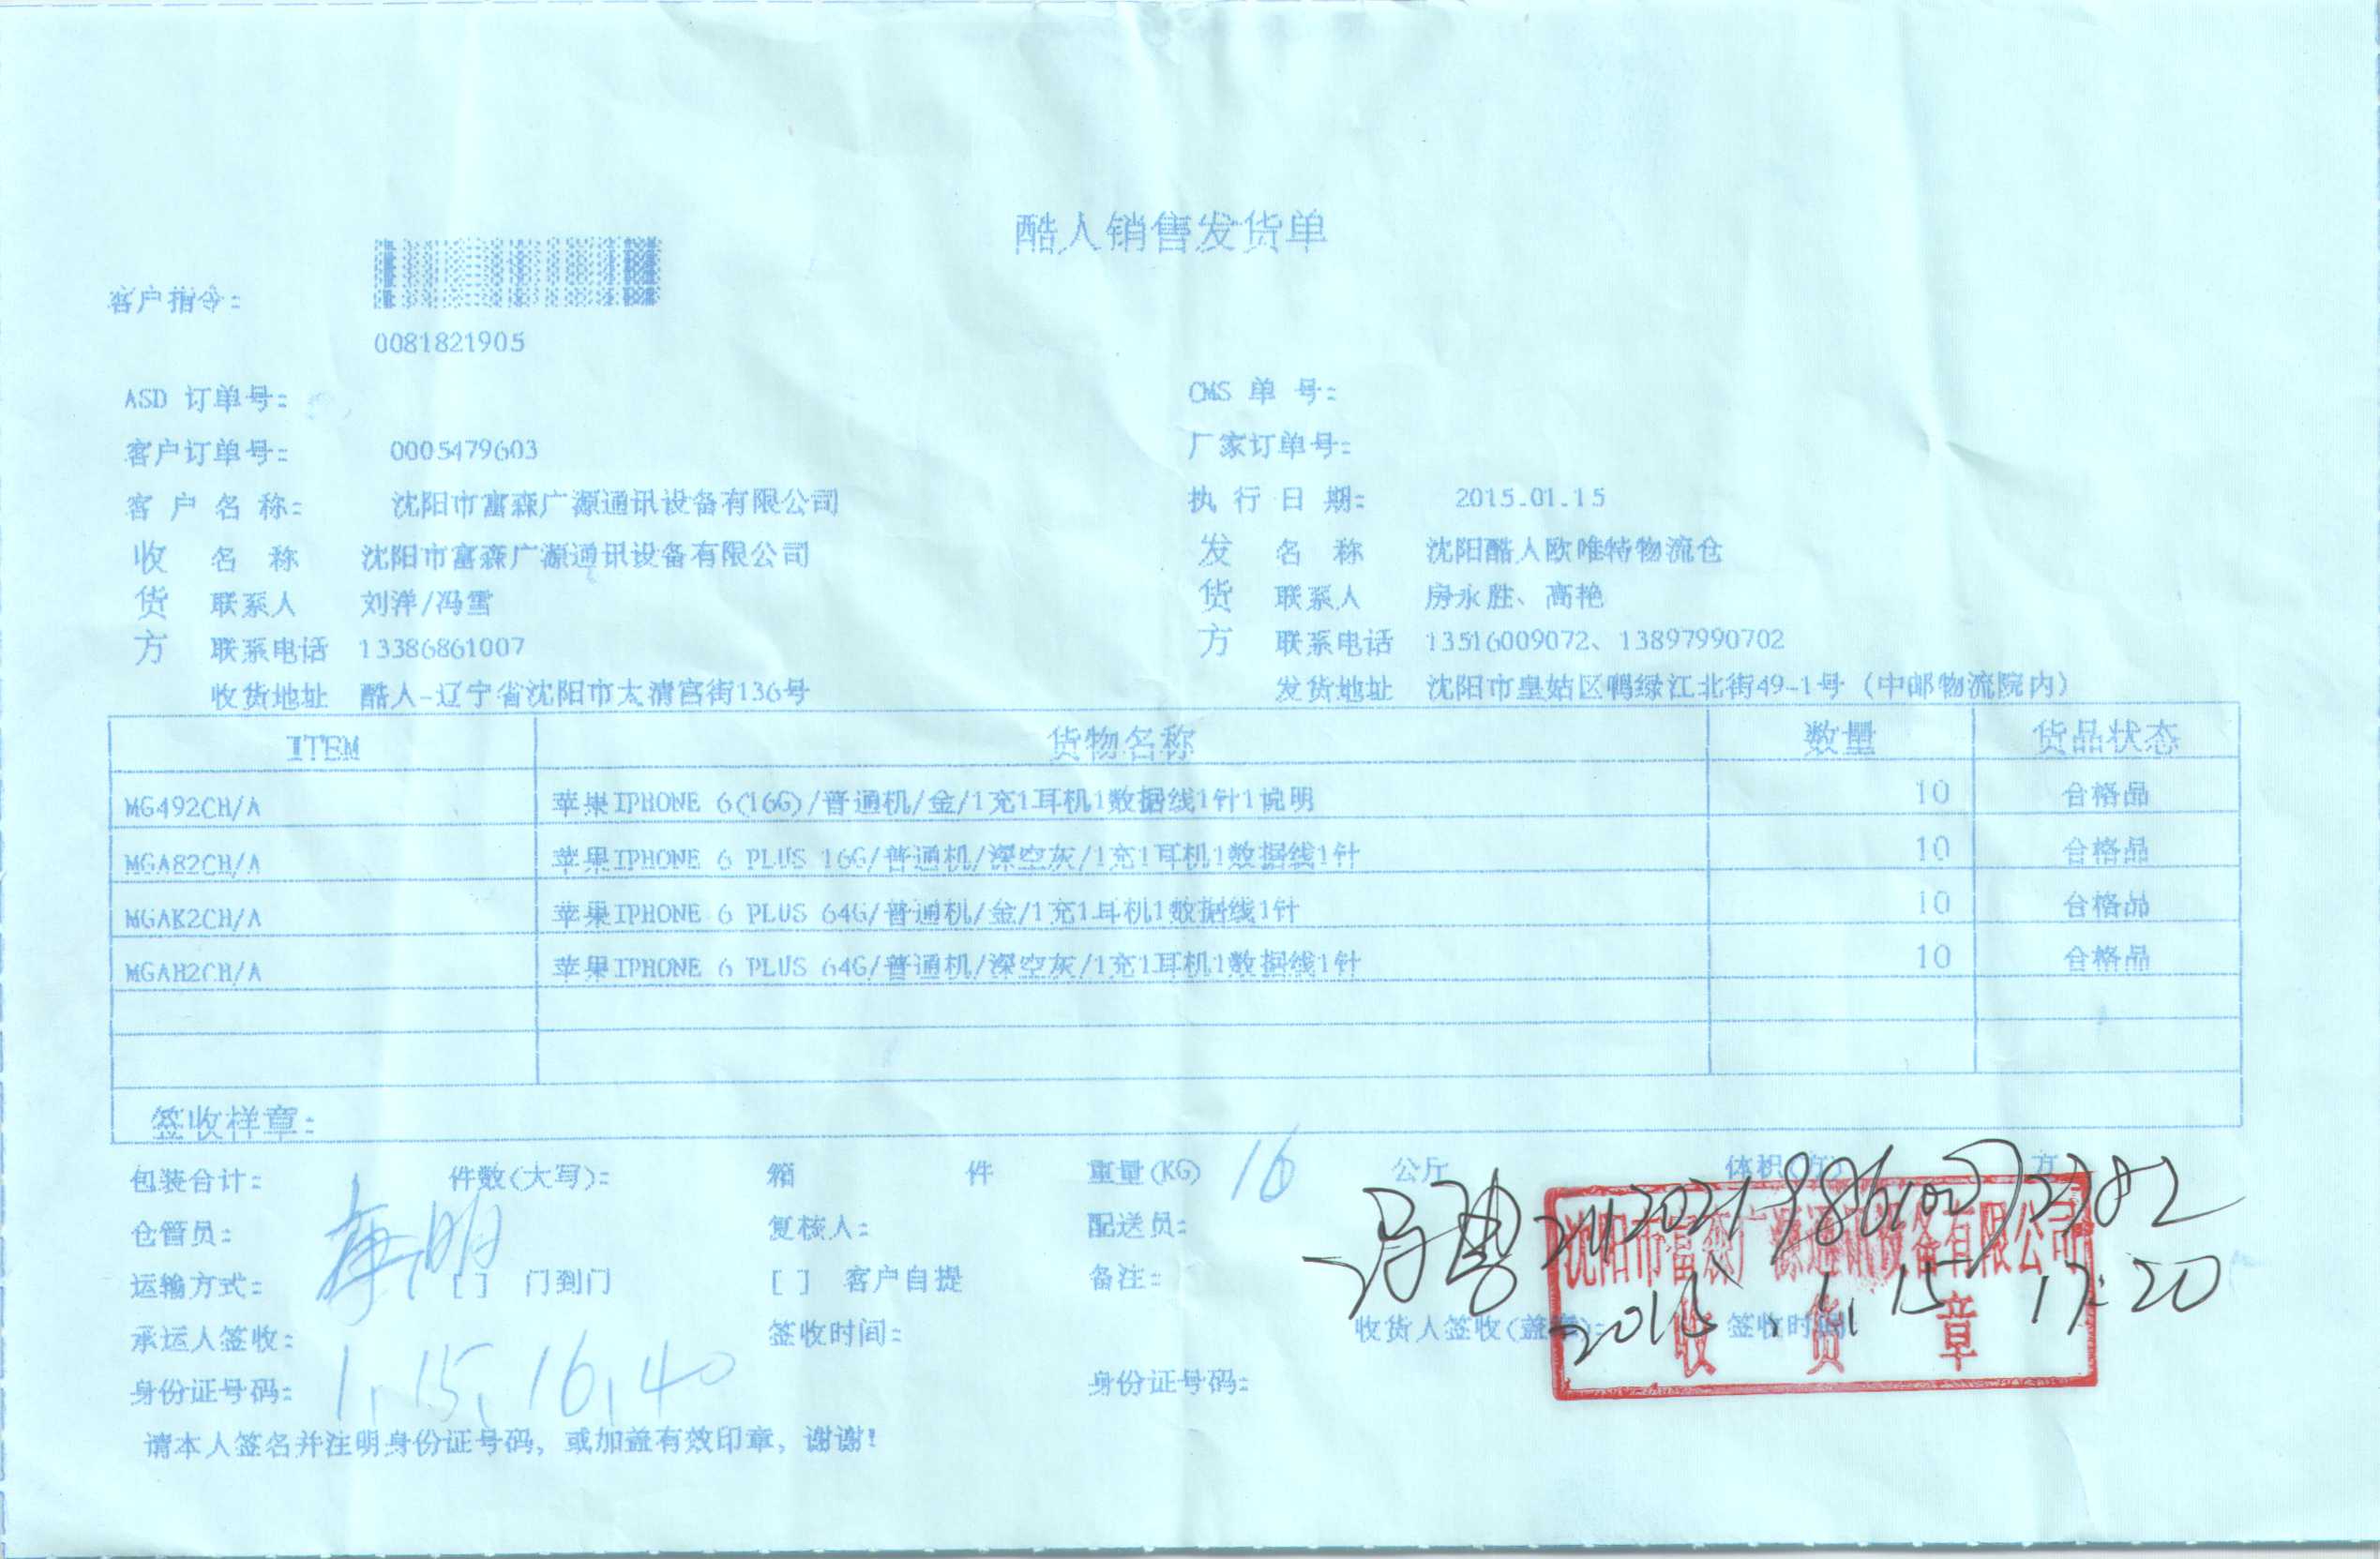 酷人销售发货单
客户指令:
0081821905
ASD 订单号: CMS 单 号:
客户订单号: 0005479603 厂家订单号:
客 户 名 称: 沈阳市富森广源通讯设备有限公司 执 行 日 期: 2015.01.15
收 名 称 沈阳市富森广源通讯设备有限公司 发 名 称 沈阳酷人欧唯特物流仓
货 联系人 刘洋/冯雪 货 联系人 房永胜、高艳
方 联系电话 13386861007 方 联系电话 13516009072、13897990702
收货地址 酷人-辽宁省沈阳市太清宫街136号 发货地址 沈阳市皇姑区鸭绿江北街49-1号 (中邮物流院内)
ITEM 货物名称 数量 货品状态
MG492CH/A 苹果IPHONE 6(16G)/普通机/金/1充1耳机1数据线1针1说明 10 合格品
MGA82CH/A 苹果IPHONE 6 PLUS 16G/普通机/深空灰/1充1耳机1数据线1针 10 合格品
MGAK2CH/A 苹果IPHONE 6 PLUS 64G/普通机/金/1充1耳机1数据线1针 10 合格品
MGAH2CH/A 苹果IPHONE 6 PLUS 64G/普通机/深空灰/1充1耳机1数据线1针 10 合格品
签收样章:
包装合计: 件数(大写): 箱 件 重量(KG) 16 公斤 体积(方) 方
仓管员: 复核人: 配送员:
沈阳市富森广源通讯设备有限公司
运输方式: [ ] 门到门 [ ] 客户自提 备注:
2015.1.15 17:20
承运人签收: 签收时间: 收货人签收(盖章): 签收时间:
收货章
身份证号码: 1.15.16.40 身份证号码:
请本人签名并注明身份证号码, 或加盖有效印章, 谢谢!